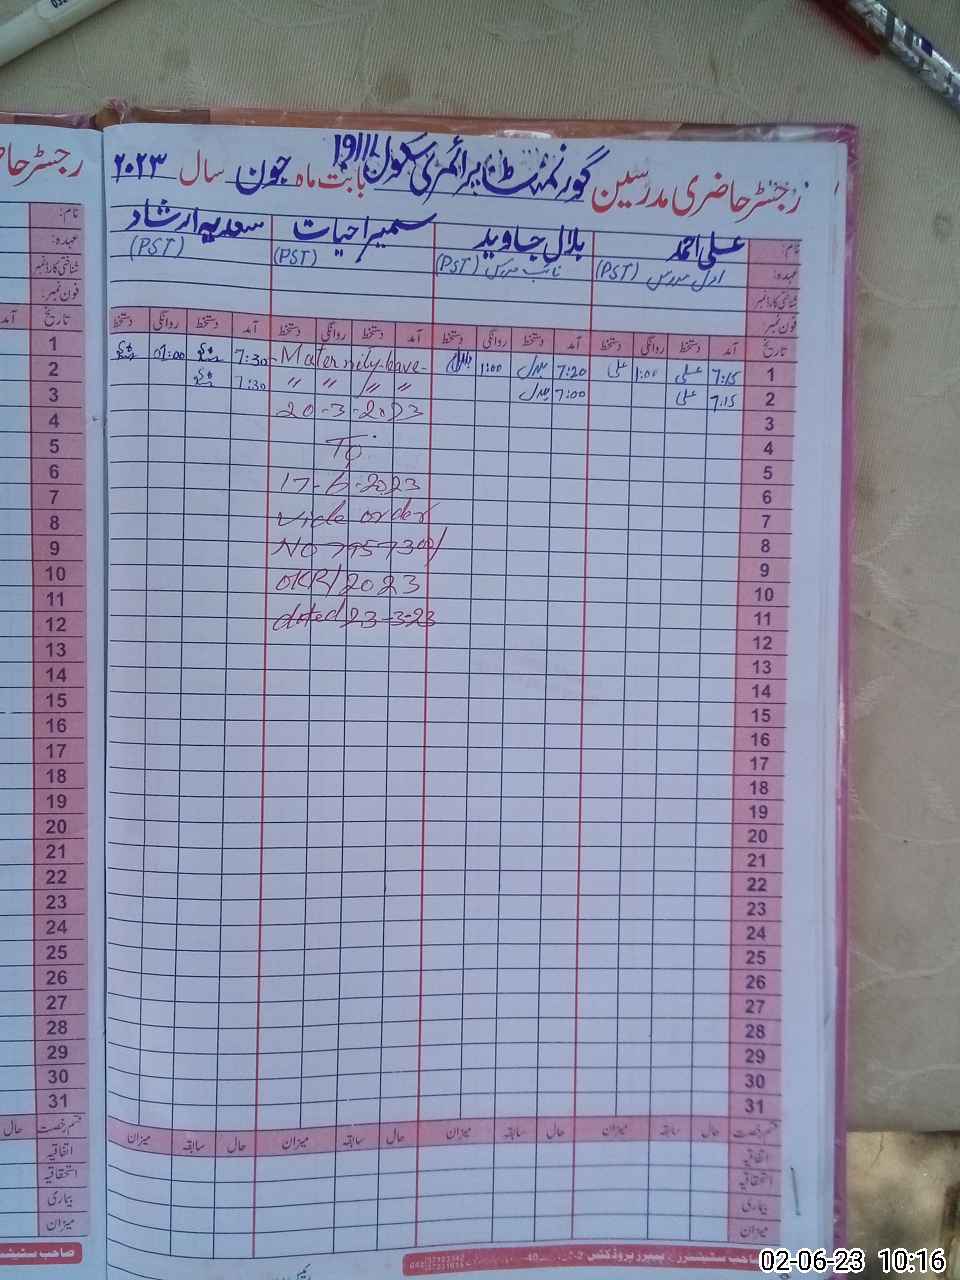 رجسٹر حاضری مدرسین گورنمنٹ پرائمری سکول 19/1L بابت ماہ جون سال ۲۰۲۳
رجسٹر حا
نام: علی احمد بلال جاوید سمیرا حیات سعدیہ ارشاد
عہدہ: اول مدرس (PST) نائب مدرس (PST) (PST) (PST)
شناختی کارڈ نمبر
فون نمبر:
تاریخ آمد دستخط روانگی دستخط آمد دستخط روانگی دستخط آمد دستخط روانگی دستخط آمد دستخط روانگی دستخط
1 7:15 علی 1:00 علی 7:20 بلال 1:00 بلال Maternity leave 7:30 01:00
2 7:15 علی 7:00 بلال " " " " 7:30
3 20-3-2023
4 To
5 17-6-2023
6
7 vide order
8 NO 795730/
9 OKR/2023
10
11 dated 23-3-23
12
13
14
15
16
17
18
19
20
21
22
23
24
25
26
27
28
29
30
31
قسم رخصت حال سابقہ میزان حال سابقہ میزان حال سابقہ میزان حال سابقہ میزان
اتفاقیہ
استحقاقیہ
بیماری
میزان
نام:
عہدہ:
شناختی کارڈ نمبر
فون نمبر:
تاریخ آمد
1
2
3
4
5
6
7
8
9
10
11
12
13
14
15
16
17
18
19
20
21
22
23
24
25
26
27
28
29
30
31
قسم رخصت حال
اتفاقیہ
استحقاقیہ
بیماری
میزان
صاحب سٹیشنرز پیپرز پروڈکٹس
صاحب سٹیشنرز
02-06-23 10:16